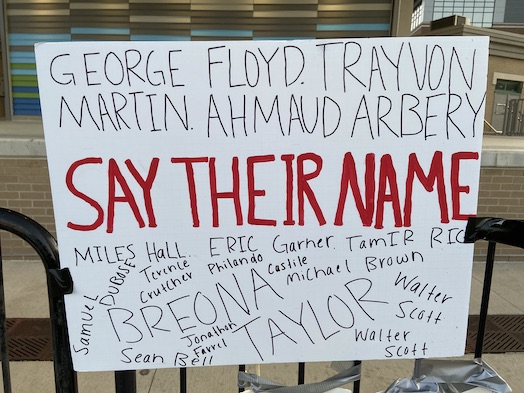 GEORGE FLOYD. TRAYVON
MARTIN. AHMAUD ARBERY
SAY THEIR NAME
MILES HaLL. ERIC Garner. TamIR RIC
Terence Crutcher
Philando Castile
Michael Brown
Samuel DuBose
BREONA TAYLOR
Walter Scott
Jonathan Farrel
Sean Bell
Walter Scott